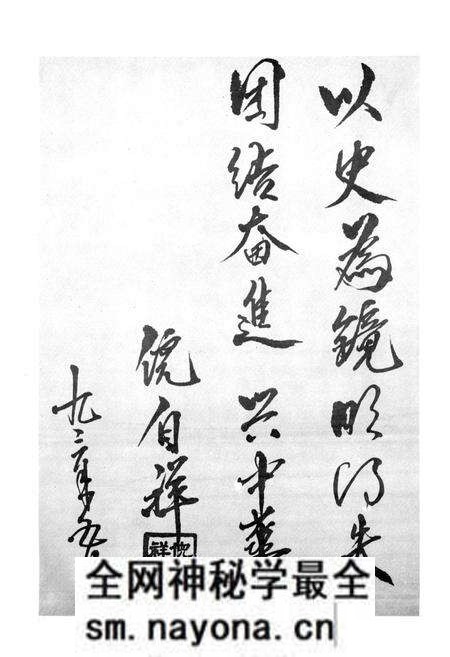 以史為鏡明得失
团结奋進兴中華
倪自祥
九三年
全网神秘学最全
sm.nayona.cn